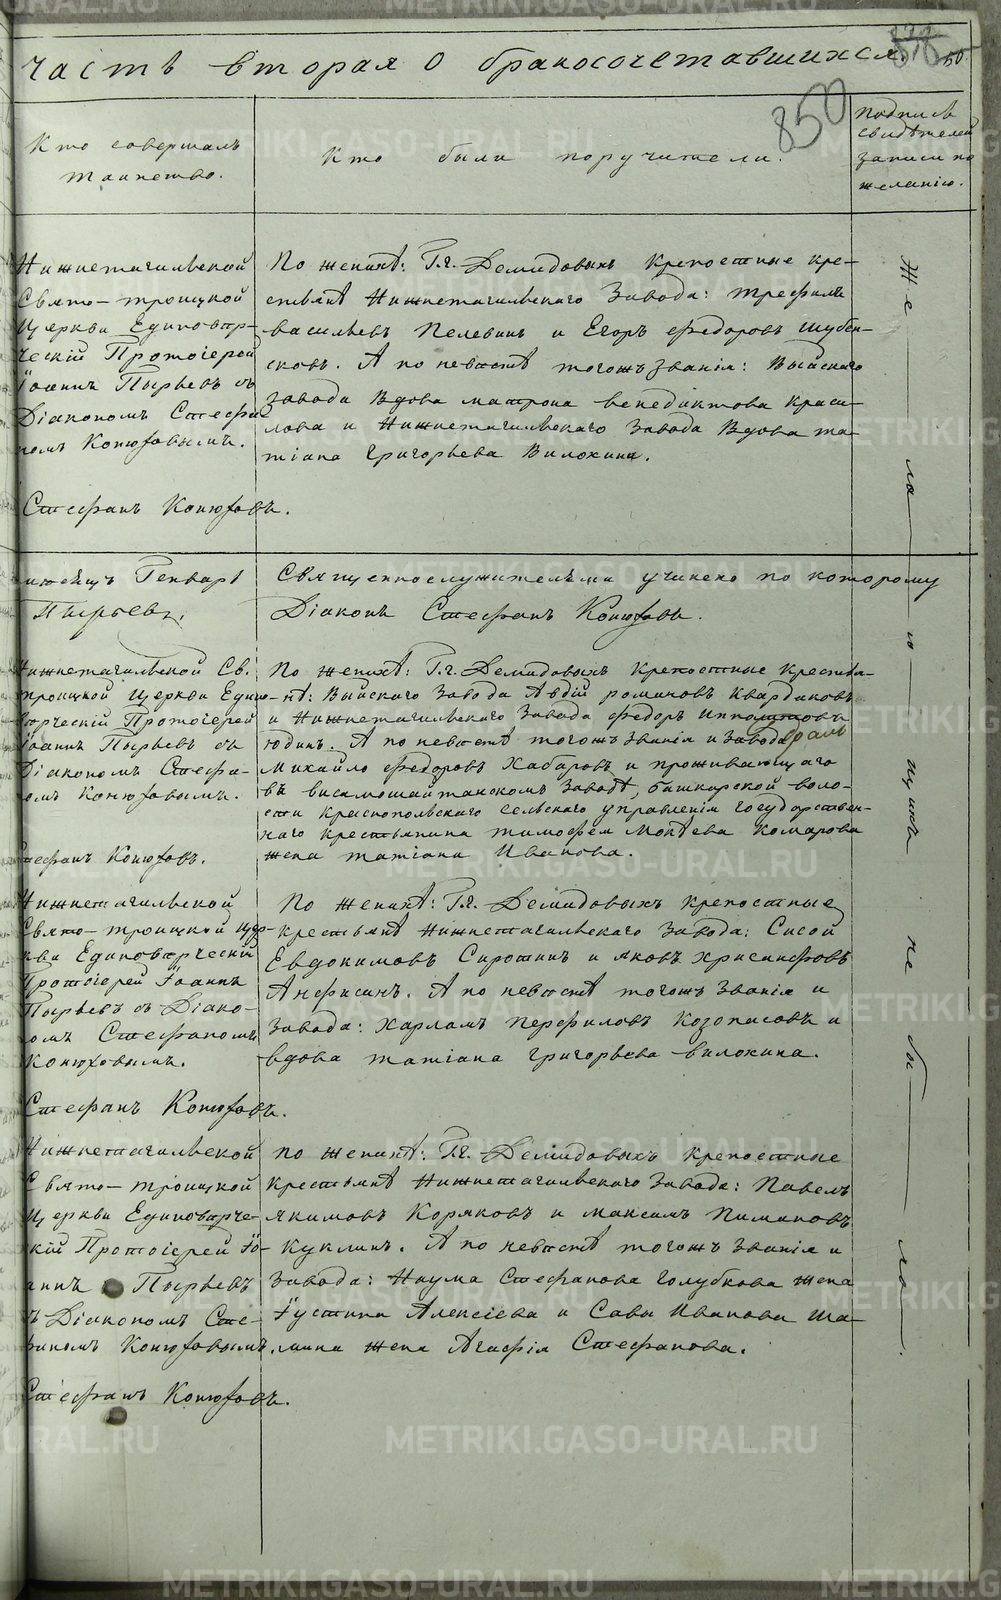 часть вторая о бракосочетавшихся.
50.
850
Кто совершалъ
таинство.
Кто были поручители.
Подпись
свидѣтелей
записи по
желанію.
Нижнетагильской
Свято-троицкой
Церкви Единовѣр-
ческій Протоіерей
Іоаннъ Пырьевъ съ
Діакономъ Стефа
номъ Конюховымъ.
Стефанъ Конюховъ.
По женихѣ: Г.г. Демидовыхъ крепостные кре-
стьянѣ Нижнетагильскаго Завода: трефилъ
васильевъ Пелевинъ и Егоръ федоровъ шубен-
сковъ. А по невѣстѣ тогожъ званія: Выйскаго
завода Вдова матрона венедиктова краси-
лова и Нижнетагильскаго Завода Вдова та-
тіана григорьева Вилохина.
Генварѣ Священнослужителями учинено по которому
Пырьевъ, Діаконъ Стефанъ Конюховъ.
Нижнетагильской Св.
троицкой Церкви Едино-
вѣрческій Протоіерей
Іоаннъ Пырьевъ съ
Діакономъ Стефа-
номъ Конюховымъ.
Стефанъ Конюховъ.
По женихѣ: Г.г. Демидовыхъ крепостные крестья-
нѣ: Выйскаго Завода Авдій романовъ Квардаковъ
и Нижнетагильскаго Завода федоръ ипполитовъ
юдинъ. А по невѣстѣ тогожъ званія и завода
Михайло федоровъ Хабаровъ и проживающаго
въ висимошайтанскомъ Заводѣ, башкарской воло-
сти краснопольскаго сельскаго управленія государствен-
наго крестьянина тимофея Мокѣева Комарова
жена татіана Иванова.
Нижнетагильской
Свято-троицкой Цер-
кви Единовѣрческій
Протоіерей Іоаннъ
Пырьевъ съ Діако-
номъ Стефаномъ
Конюховымъ.
Стефанъ Конюховъ.
По женихѣ: Г.г. Демидовыхъ крепостные
крестьянѣ Нижнетагильскаго Завода: Сисой
Евдокимовъ Сиротинъ и яковъ хрисанфовъ
Анфисинъ. А по невѣстѣ тогожъ Званія и
Завода: харламъ перфиловъ Козопасовъ и
вдова татіана григорьева вилохина.
Нижнетагильской
Свято-троицкой
Церкви Единовѣрче-
скій Протоіерей Іо-
аннъ Пырьевъ
съ Діакономъ Сте-
фаномъ Конюховымъ.
Стефанъ Конюховъ.
по женихѣ: Г.г. Демидовыхъ крепостные
крестьянѣ Нижнетагильскаго Завода: Павелъ
якимовъ Коряковъ и максимъ Пимановъ
Куклинъ. А по невѣстѣ тогожъ Званія и
Завода: Наума Стефанова голубкова жена
Іустина Алексіева и Савы Иванова ша-
лина жена Агафія Стефанова.
Же-ла-ющихъ не бы-ло.
METRIKI.GASO-URAL.RU